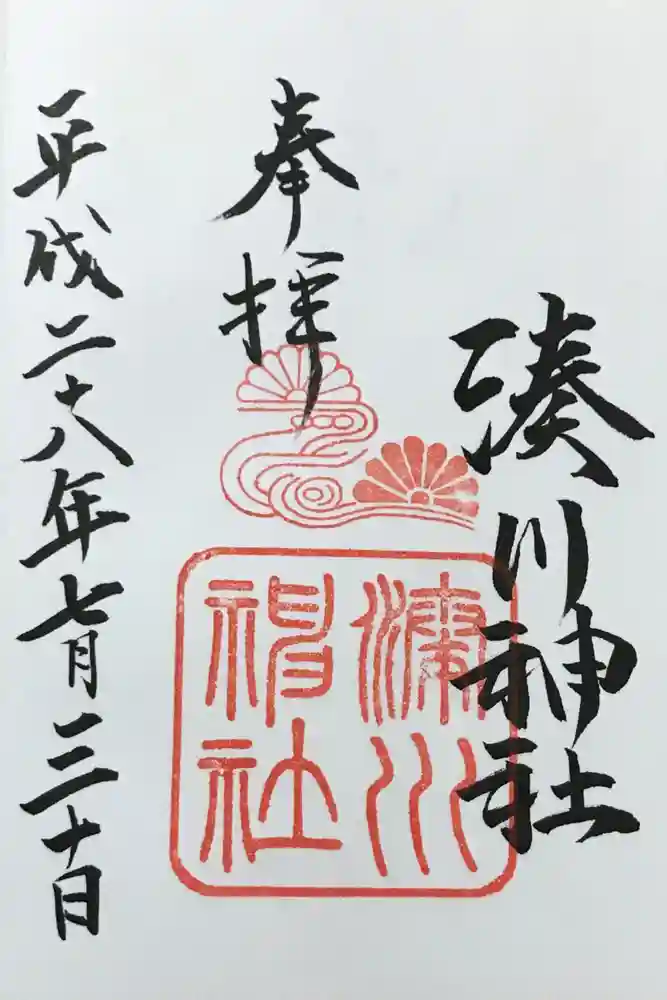 湊川神社
奉拝
平成二十八年七月三十日
湊川
神社